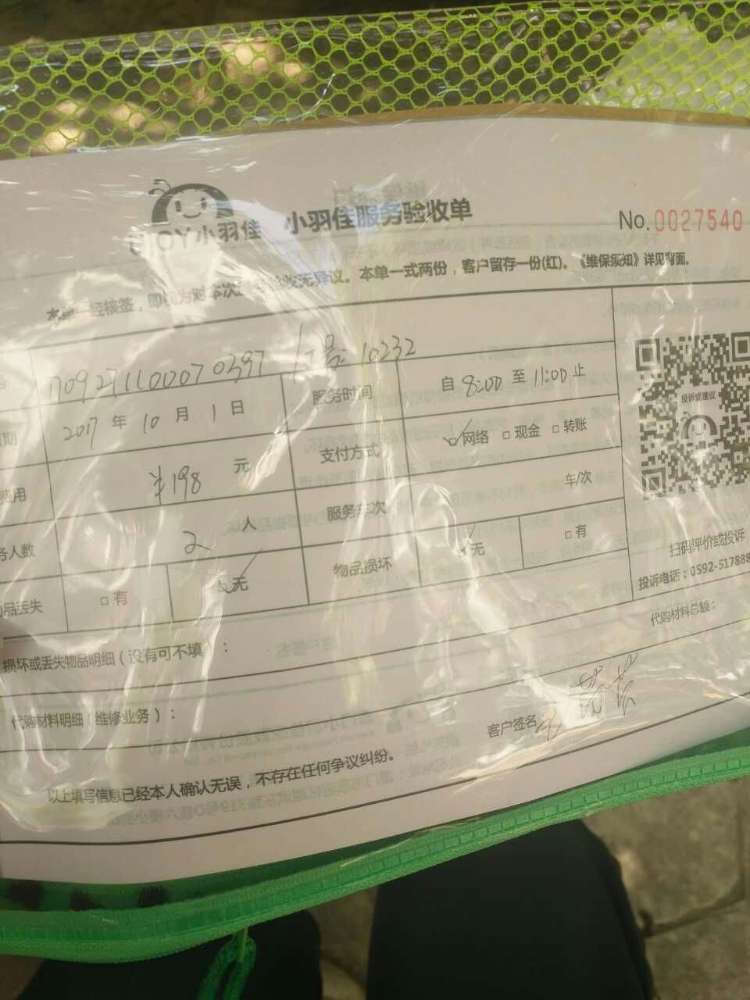 小羽佳 小羽佳服务验收单 No.0027540
验收无异议。本单一式两份，客户留存一份(红)。《维保须知》详见背面。
工号:10232
2017 年 10 月 1 日 服务时间 自 8:00 至 11:00 止
¥198 元 支付方式 网络 现金 转账
投诉或建议
务人数 2 人 服务车次 车/次
有 无 物品损坏 无 有
扫码评价或投诉
投诉电话：0592-517888
损坏或丢失物品明细（没有可不填 ：
代购材料总额：
代购材料明细（维修业务）：
客户签名
以上填写信息已经本人确认无误，不存在任何争议纠纷。